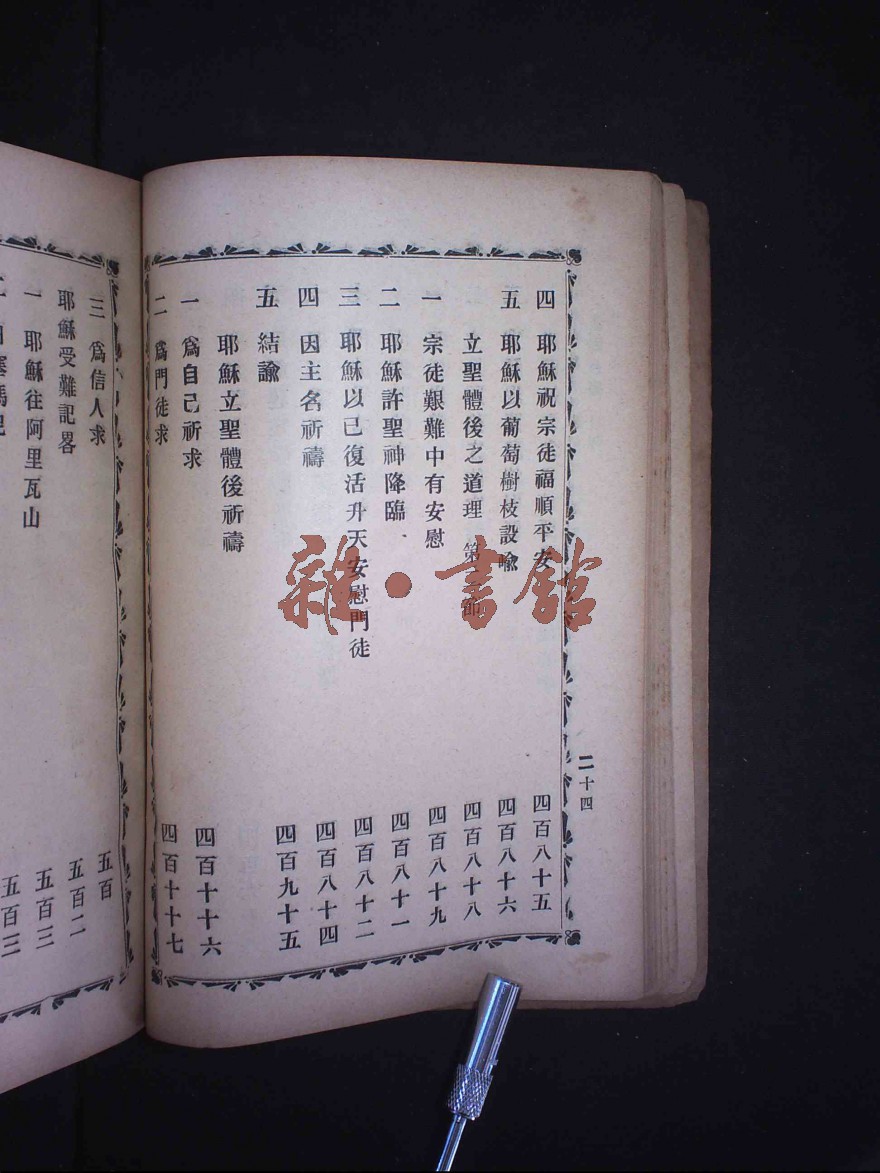 四 耶穌祝宗徒福順平安 四百八十五
五 耶穌以葡萄樹枝設喻 四百八十六
立聖體後之道理 第 四百八十八
一 宗徒艱難中有安慰 四百八十九
二 耶穌許聖神降臨 四百八十一
三 耶穌以已復活升天安慰門徒 四百八十二
四 因主名祈禱 四百八十四
五 結諭 四百九十五
耶穌立聖體後祈禱
一 爲自己祈求 四百十十六
二 爲門徒求 四百十十七
二十四
三 爲信人求 五百
耶穌受難記畧 五百二
一 耶穌往阿里瓦山 五百三
五百三
雜·書館